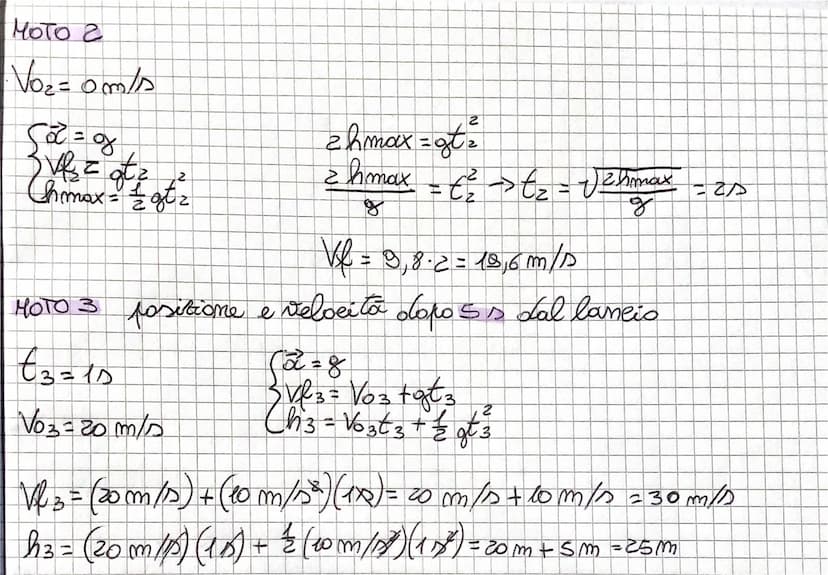 MOTO 2
V₀₂ = 0 m/s
{ a⃗ = g
Vf₂ = gt₂
hmax = 1/2 gt₂²
2hmax = gt₂²
2hmax/g = t₂² → t₂ = √(2hmax/g) = 2s
Vf = 9,8·2 = 19,6 m/s
MOTO 3 posizione e velocità dopo 5 s dal lancio
t₃ = 1s
V₀₃ = 20 m/s
{ a⃗ = g
Vf₃ = V₀₃ + gt₃
h₃ = V₀₃t₃ + 1/2 gt₃²
Vf₃ = (20 m/s) + (10 m/s²)(1s) = 20 m/s + 10 m/s = 30 m/s
h₃ = (20 m/s)(1s) + 1/2 (10 m/s²)(1s²) = 20m + 5m = 25m